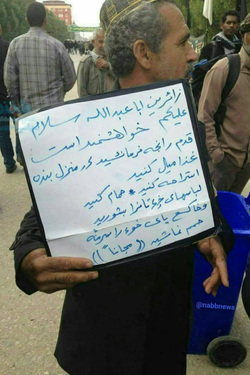 زائرین اباعبدالله سلام
علیکم خواهشمند است
قدم رانجه فرمائید در منزل بنده
غذا میل کنید
استراحت کنید، حمام کنید
لباسهای خود تانرا بشورید
و خاک پای خود را سرمه
چشم ما
((مجاناً))
@nabbnews